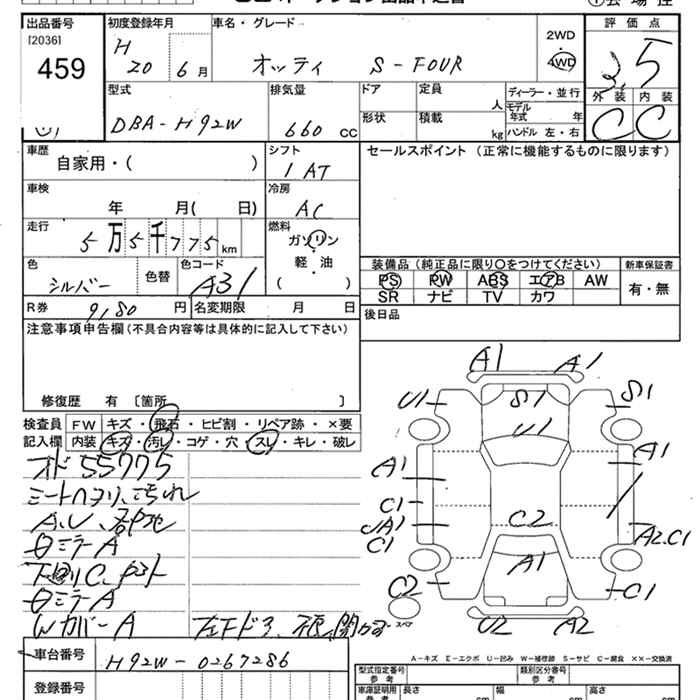 出品番号
[2036]
459
初度登録年月
H 20 6月
車名・グレード
オッティ S-FOUR
2WD
・
4WD
評価点
3.5
外装 内装
C C
型式
DBA-H92W
排気量
660 cc
ドア
定員 人
ディーラー・並行
モデル年式 年
形状
積載 kg
ハンドル 左・右
車歴
自家用・( )
シフト
1 AT
セールスポイント (正常に機能するものに限ります)
車検
年 月( 日)
冷房
AC
走行
5万5千775km
燃料
ガソリン
軽・油
( )
色
シルバー
色替
色コード
A31
装備品 (純正品に限り〇をつけてください)
新車保証書
PS PW ABS エアB AW
SR ナビ TV カワ
有・無
R券 9,180 円
名変期限 月 日
後日品
注意事項申告欄 (不具合内容等は具体的に記入して下さい)
修復歴 有 [箇所 ]
検査員
記入欄
FW キズ・飛石・ヒビ割・リペア跡・×要
内装 キズ・汚レ・コゲ・穴・スレ・キレ・破レ
オド 55775
シートヘタリ、こすれ
A、U、各部地
白ミラーA
下回りC、
白ミラーA
WカバーA
A1 A1
U1 S1 S1
U1
A1 A1
C1
UA1
C1
C2
A2.C1
A1
C2 C1
スペア
U2 A2
A-キズ E-エクボ U-凹み W-補修跡 S-サビ C-腐食 ××-交換済
車台番号
H92W-0267286
登録番号
型式指定番号
参考
類別区分番号
参考
車庫証明用
参考
長さ cm
幅 cm
高さ cm